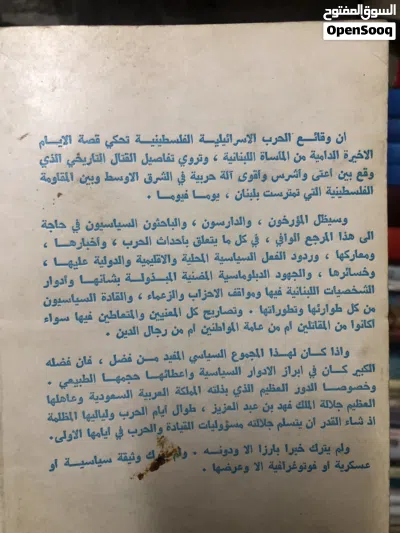 السوق المفتوح
OpenSooq
ان وقائع الحرب الاسرائيلية الفلسطينية تحكي قصة الايام
الاخيرة الدامية من الماساة اللبنانية ، وتروي تفاصيل القتال التاريخي الذي
وقع بين اعتى واشرس واقوى آلة حربية في الشرق الاوسط وبين المقاومة
الفلسطينية التي تمترست بلبنان ، يوما فيوما .
وسيظل المؤرخون ، والدارسون ، والباحثون السياسيون في حاجة
الى هذا المرجع الوافي ، في كل ما يتعلق باحداث الحرب ، واخبارها ،
ومعاركها ، وردود الفعل السياسية المحلية والاقليمية والدولية عليها ،
وخسائرها ، والجهود الدبلوماسية المضنية المبذولة بشانها وادوار
الشخصيات اللبنانية فيها ومواقف الاحزاب والزعماء ، والقادة السياسيون
من كل طوارئها وتطوراتها . وتصاريح كل المعنيين والمتعاطين فيها سواء
اكانوا من المقاتلين ام من عامة المواطنين ام من رجال الدين .
واذا كان لهذا المجموع السياسي المفيد من فضل ، فان فضله
الكبير كان في ابراز الادوار السياسية واعطائها حجمها الطبيعي .
وخصوصا الدور العظيم الذي بذلته المملكة العربية السعودية وعاهلها
العظيم جلالة الملك فهد بن عبد العزيز ، طوال ايام الحرب ولياليها المظلمة
اذ شاء القدر ان يتسلم جلالته مسؤوليات القيادة والحرب في ايامها الاولى .
ولم يترك خبرا بارزا الا ودونه . ولم يترك وثيقة سياسية او
عسكرية او فوتوغرافية الا وعرضها .